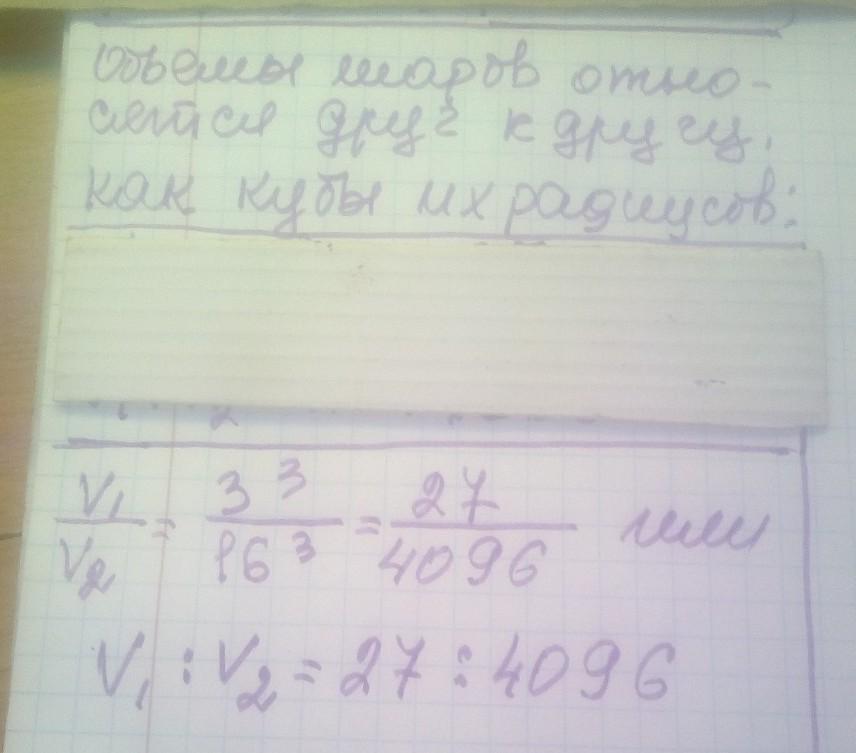 Объемы шаров отно-
сятся друг к другу,
как кубы их радиусов:
V₁/V₂ = 3³/16³ = 27/4096 или
V₁ : V₂ = 27 : 4096